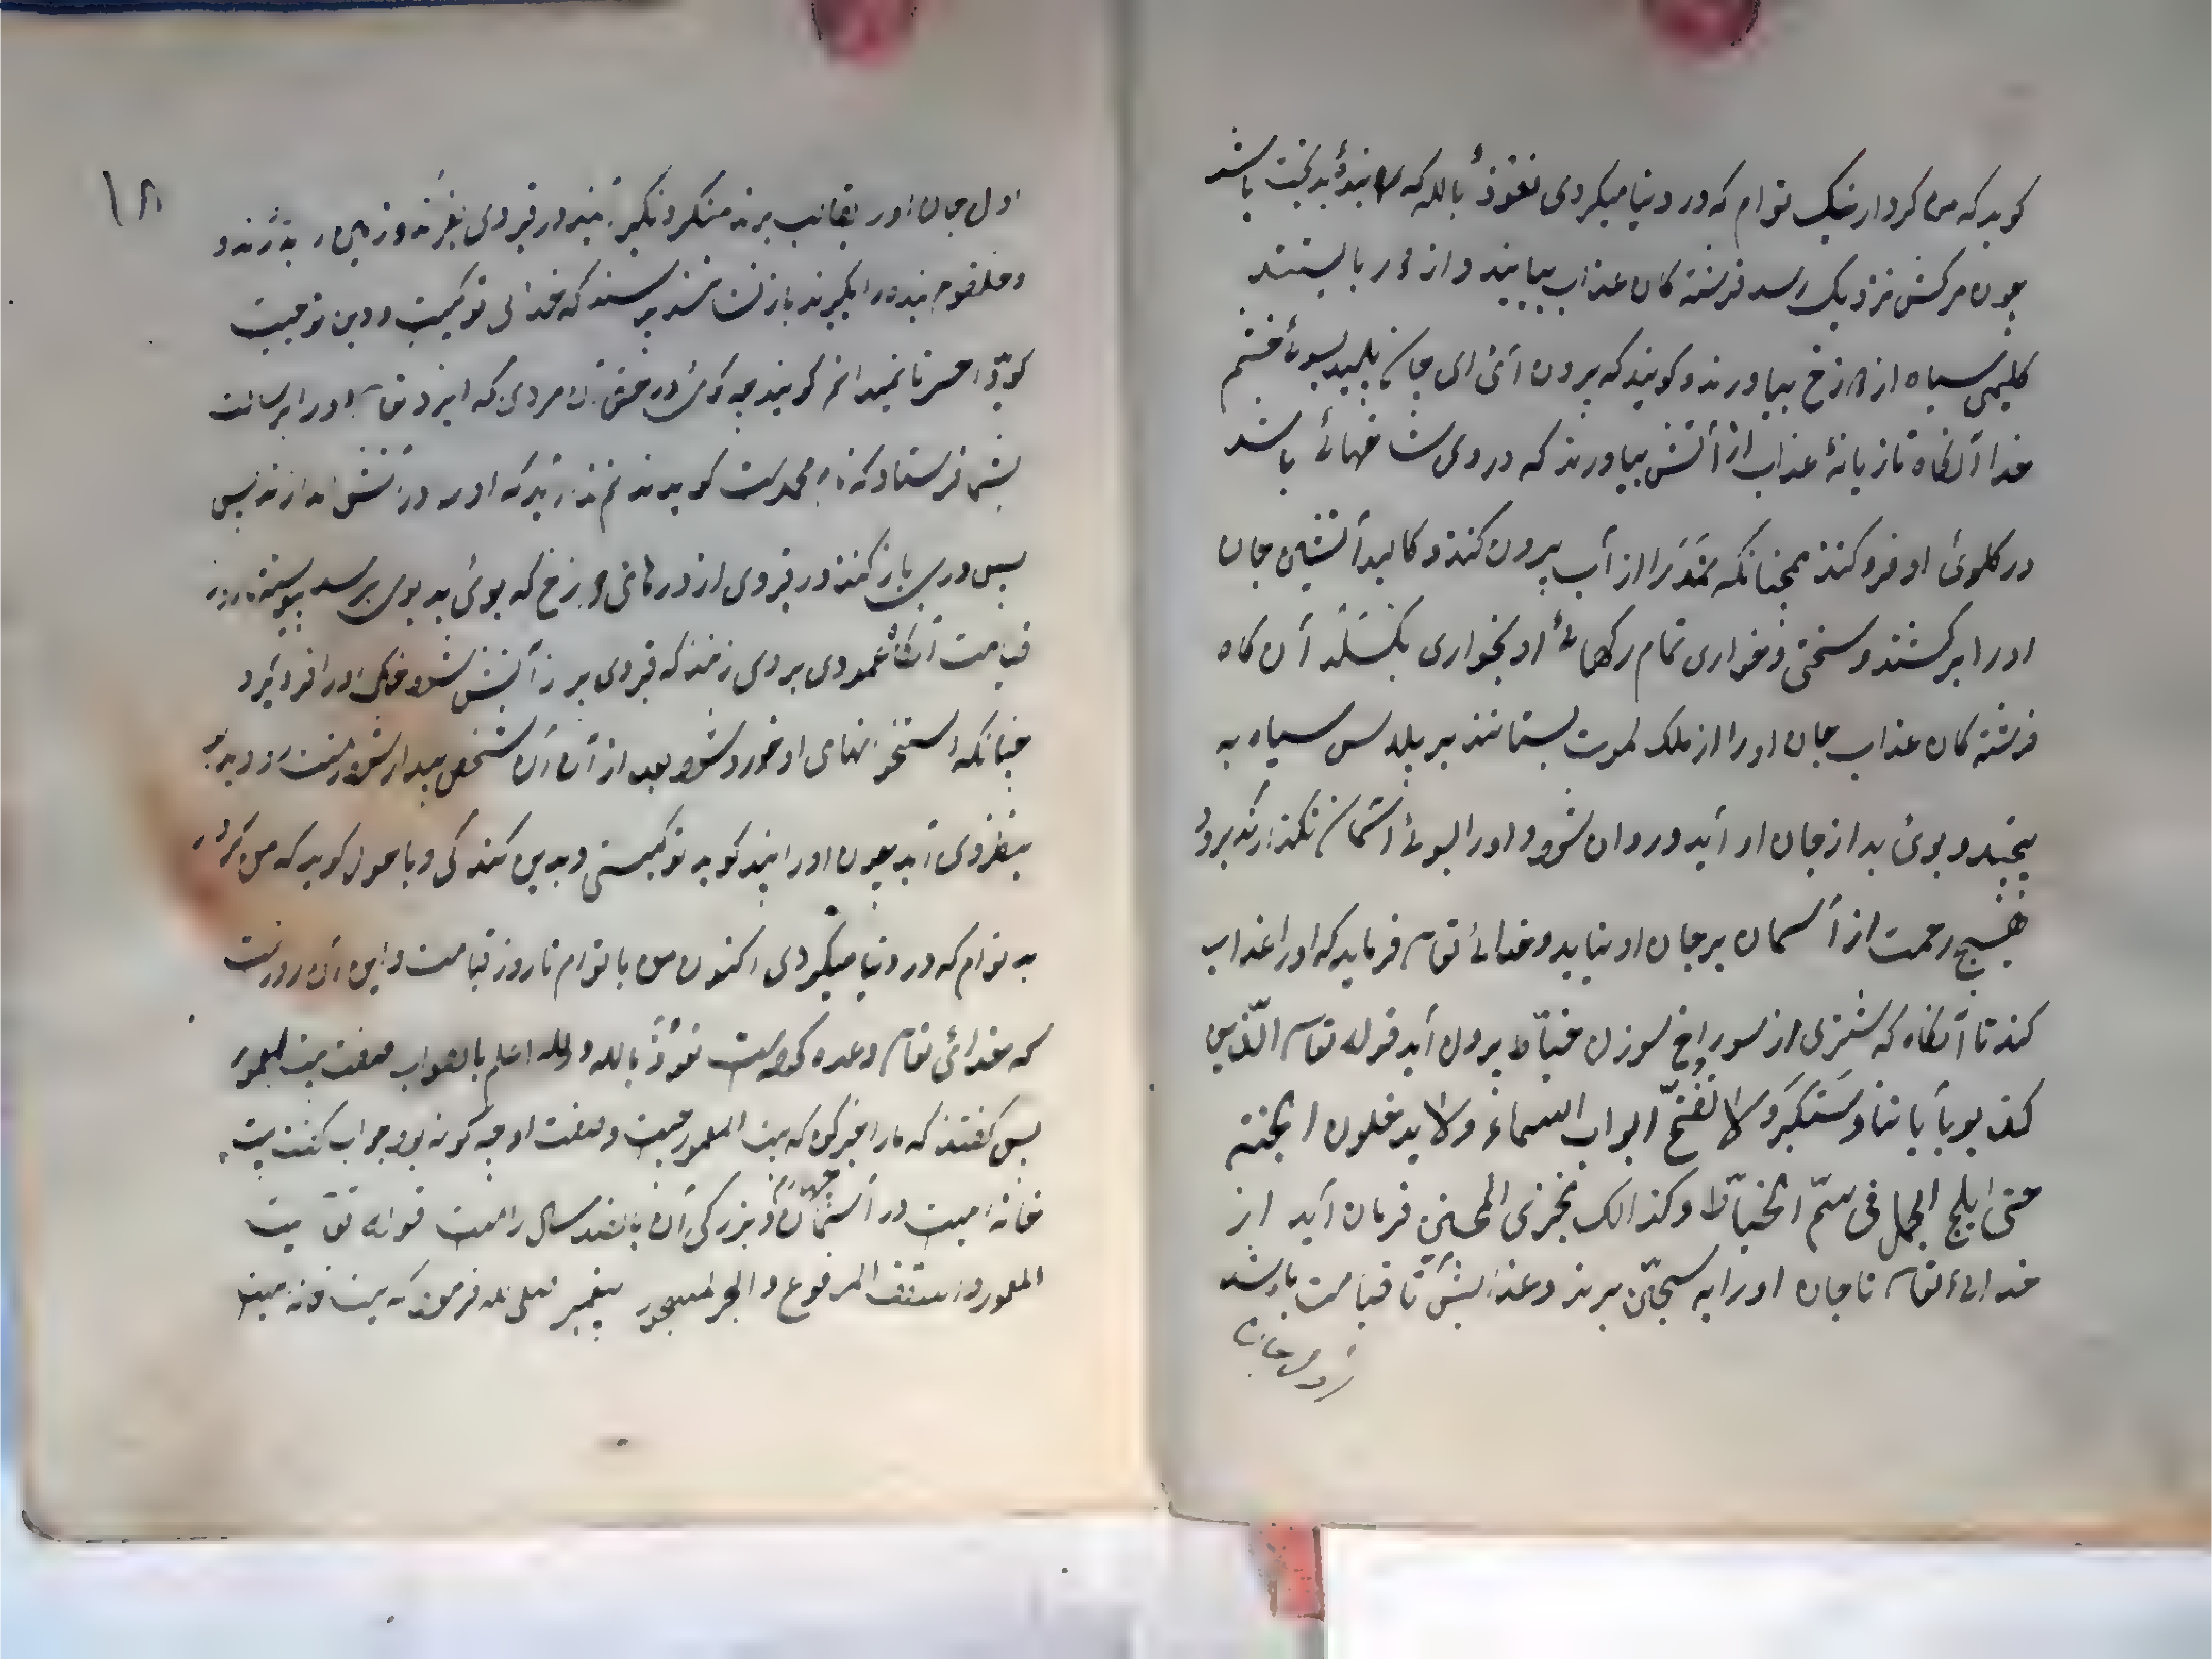 گوید که من کردار نیک توام که در دنیا میکردی نعوذ بالله که بندهٔ بدبخت باشد
چون مرکش نزدیک رسد فرشته کان عذاب بیایند و از دور بایستند
کلیمی سیاه از دوزخ بیاورند و کویند که برون آئ ای جان پلید بسوئ خشم
خدا آنکاه تازیانهٔ عذاب از آتش بیاورند که در وی شاخهائ باشد
در کلوئ او فرو کنند همچنانکه نمد را از آب برون کنند و کالبد آتشین جان
او را برکشند و سختی و خواری تمام رکهائ او بخواری بکسلد آن کاه
فرشته کان عذاب جان او را از ملک لموت بستانند بر پلاس سیاه به
پیچند و بوئ بد از جان او آید و روان شود و او را بسوئ آسمان نکذارند برود
هیج رحمت از آسمان بر جان او نیاید و خدائ تعالی فرماید که او را عذاب
کند تا آنکاه که شتری از سوراخ سوزن خیاط برون آید قوله تعالی الذین
کذبو بآیاتنا وستکبرو لا تفتح ابواب السماء ولا یدخلون الجنة
حتی ایلج الجمل فی سم الخیاط وکذالک نجزی المحسنین فرمان آید از
خدائ تعالی تا جان او را به سجین برند و عذابش تا قیامت باشد
۱۸
اول جان او را بقالب برند منکر و نکیر آیند در قبر وی بغرند و زمین را بدرند و
و حلقوم بنده را بکیرند باز نشانند پرسند که خدای تو کیست و دین تو چیست
کوید احسرتا نمیدانم کویند چه کوئی در حق آن مردی که ایزد تعالی او را برسالت
بشما فرستاد که نام محمد است کوید ندانم ندا آید که او را در آتش اندازند پس
پس دری باز کنند در قبر وی از درهائ دوزخ که بوئ بد بوی برسد پیوسته تا روز
قیامت آنکاه عمودی بروی زنند که قبر وی پر ز آتش شود و خاک او را فرو کیرد
چنانکه استخوانهای او خورد شود بعد از آن آن شخص پیدا شود زشت رو و بد بو
بنظر وی آید چون او را بیند کوید تو کیستی و بدین کندکی و با هول کوید که من کردار
بد توام که در دنیا میکردی اکنون من با توام تا روز قیامت و این آن روز است
که خدائ تعالی وعده کرده است نعوذ بالله والله اعلم بالصواب صفت بیت المعمور
پس کفتند که ما را خبر کن که بیت المعمور چیست و صفت او چه کونه بود جواب کفت بیت
خانه ایست در آسمان چهارم و بزرکی آن پانصد سال راه است قوله تعالی بیت
المعمور و السقف المرفوع و البحر المسجور پیغمبر صلی الله فرمود که بیت خانه